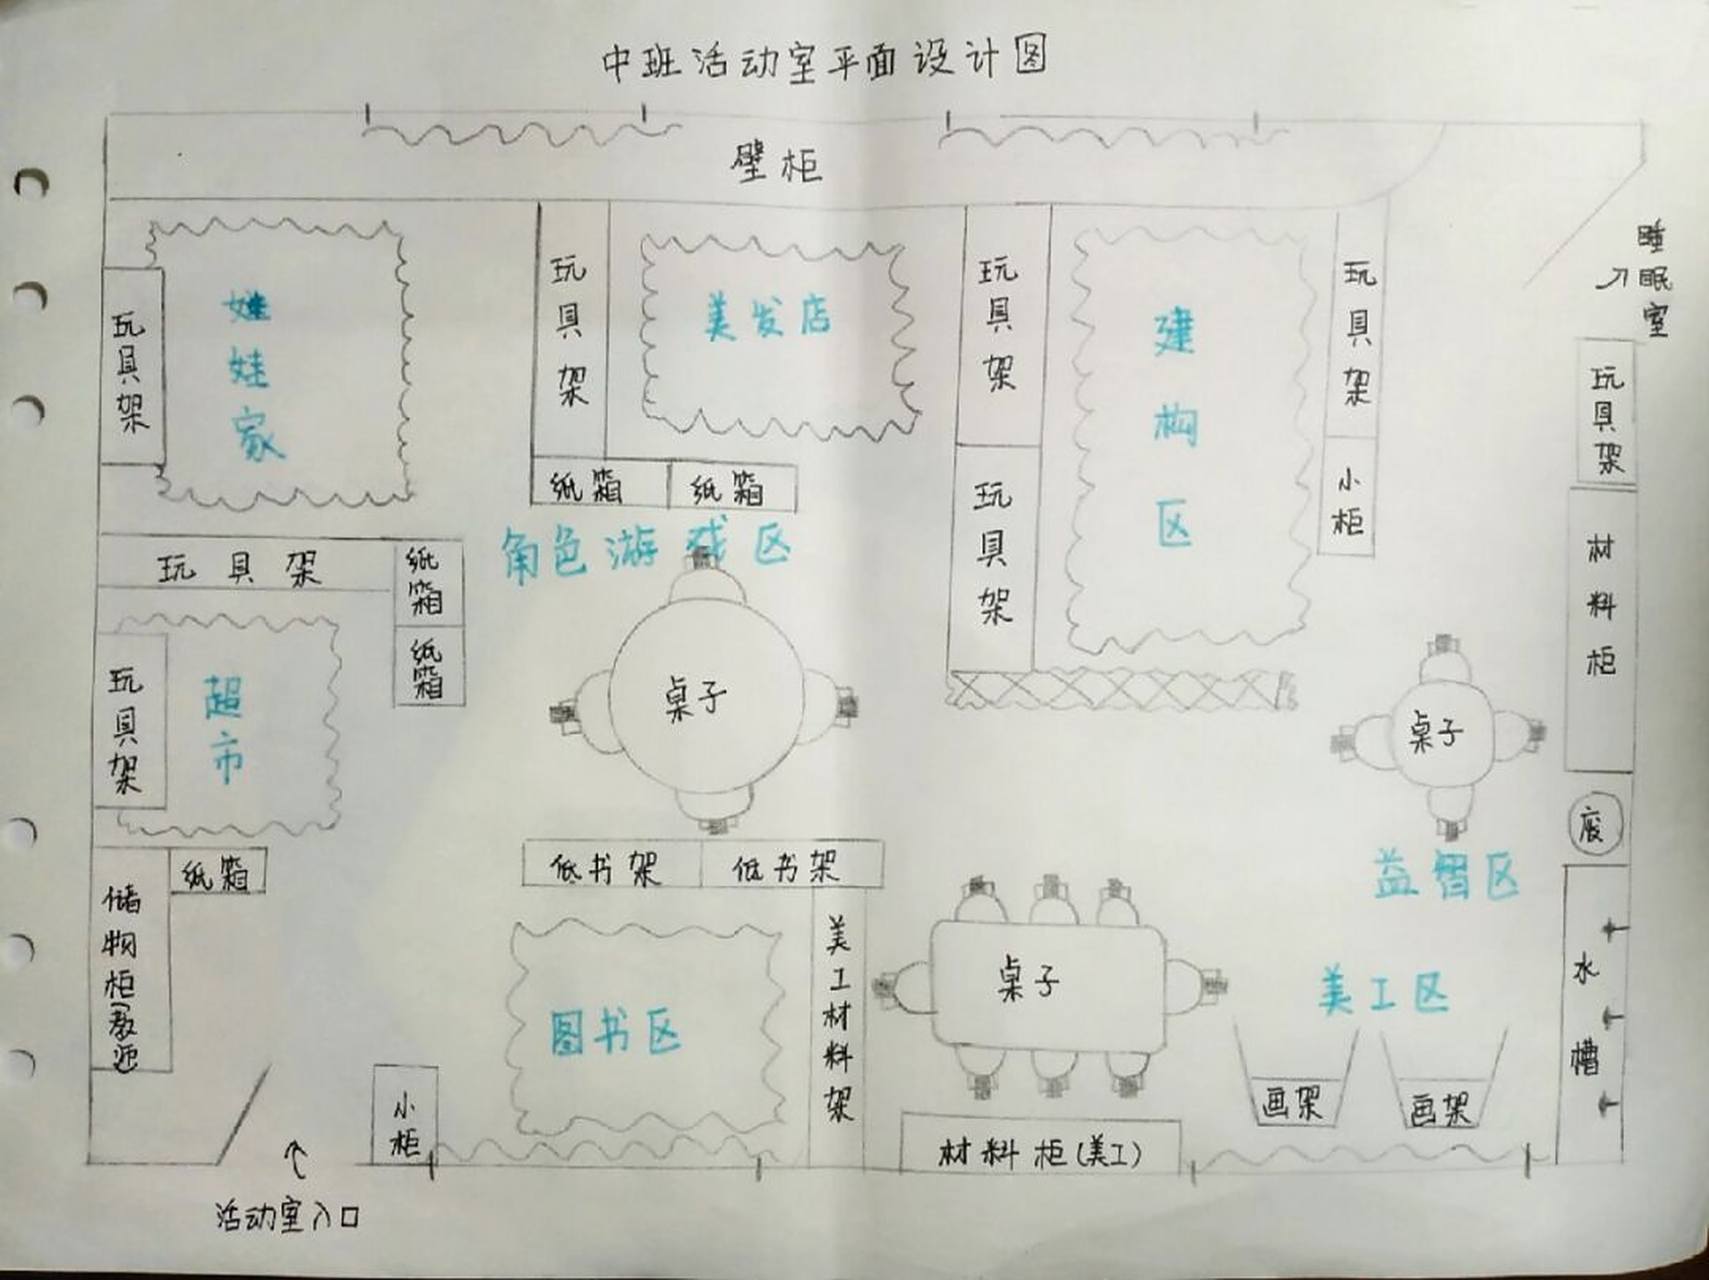 中班活动室平面设计图
壁柜
玩具架
娃娃家
玩具架
美发店
纸箱
纸箱
玩具架
玩具架
建构区
玩具架
小柜
睡眠室
入
玩具架
材料柜
角色游戏区
玩具架
纸箱
纸箱
玩具架
超市
桌子
桌子
废
益智区
纸箱
储物柜(教师)
低书架
低书架
图书区
美工材料架
桌子
美工区
水槽
画架
画架
小柜
材料柜(美工)
活动室入口